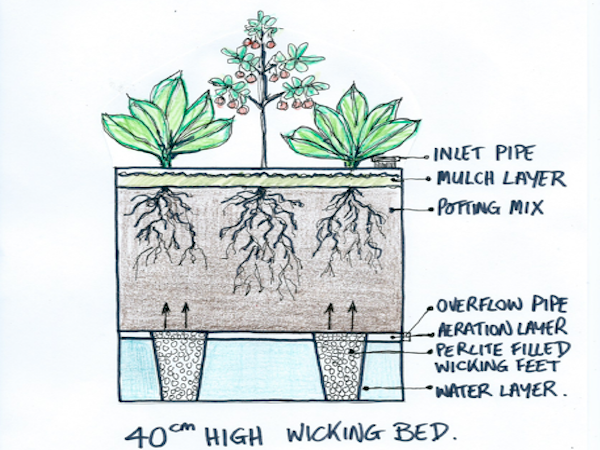 INLET PIPE
MULCH LAYER
POTTING MIX
OVERFLOW PIPE
AERATION LAYER
PERLITE FILLED
WICKING FEET
WATER LAYER.
40cm HIGH WICKING BED.